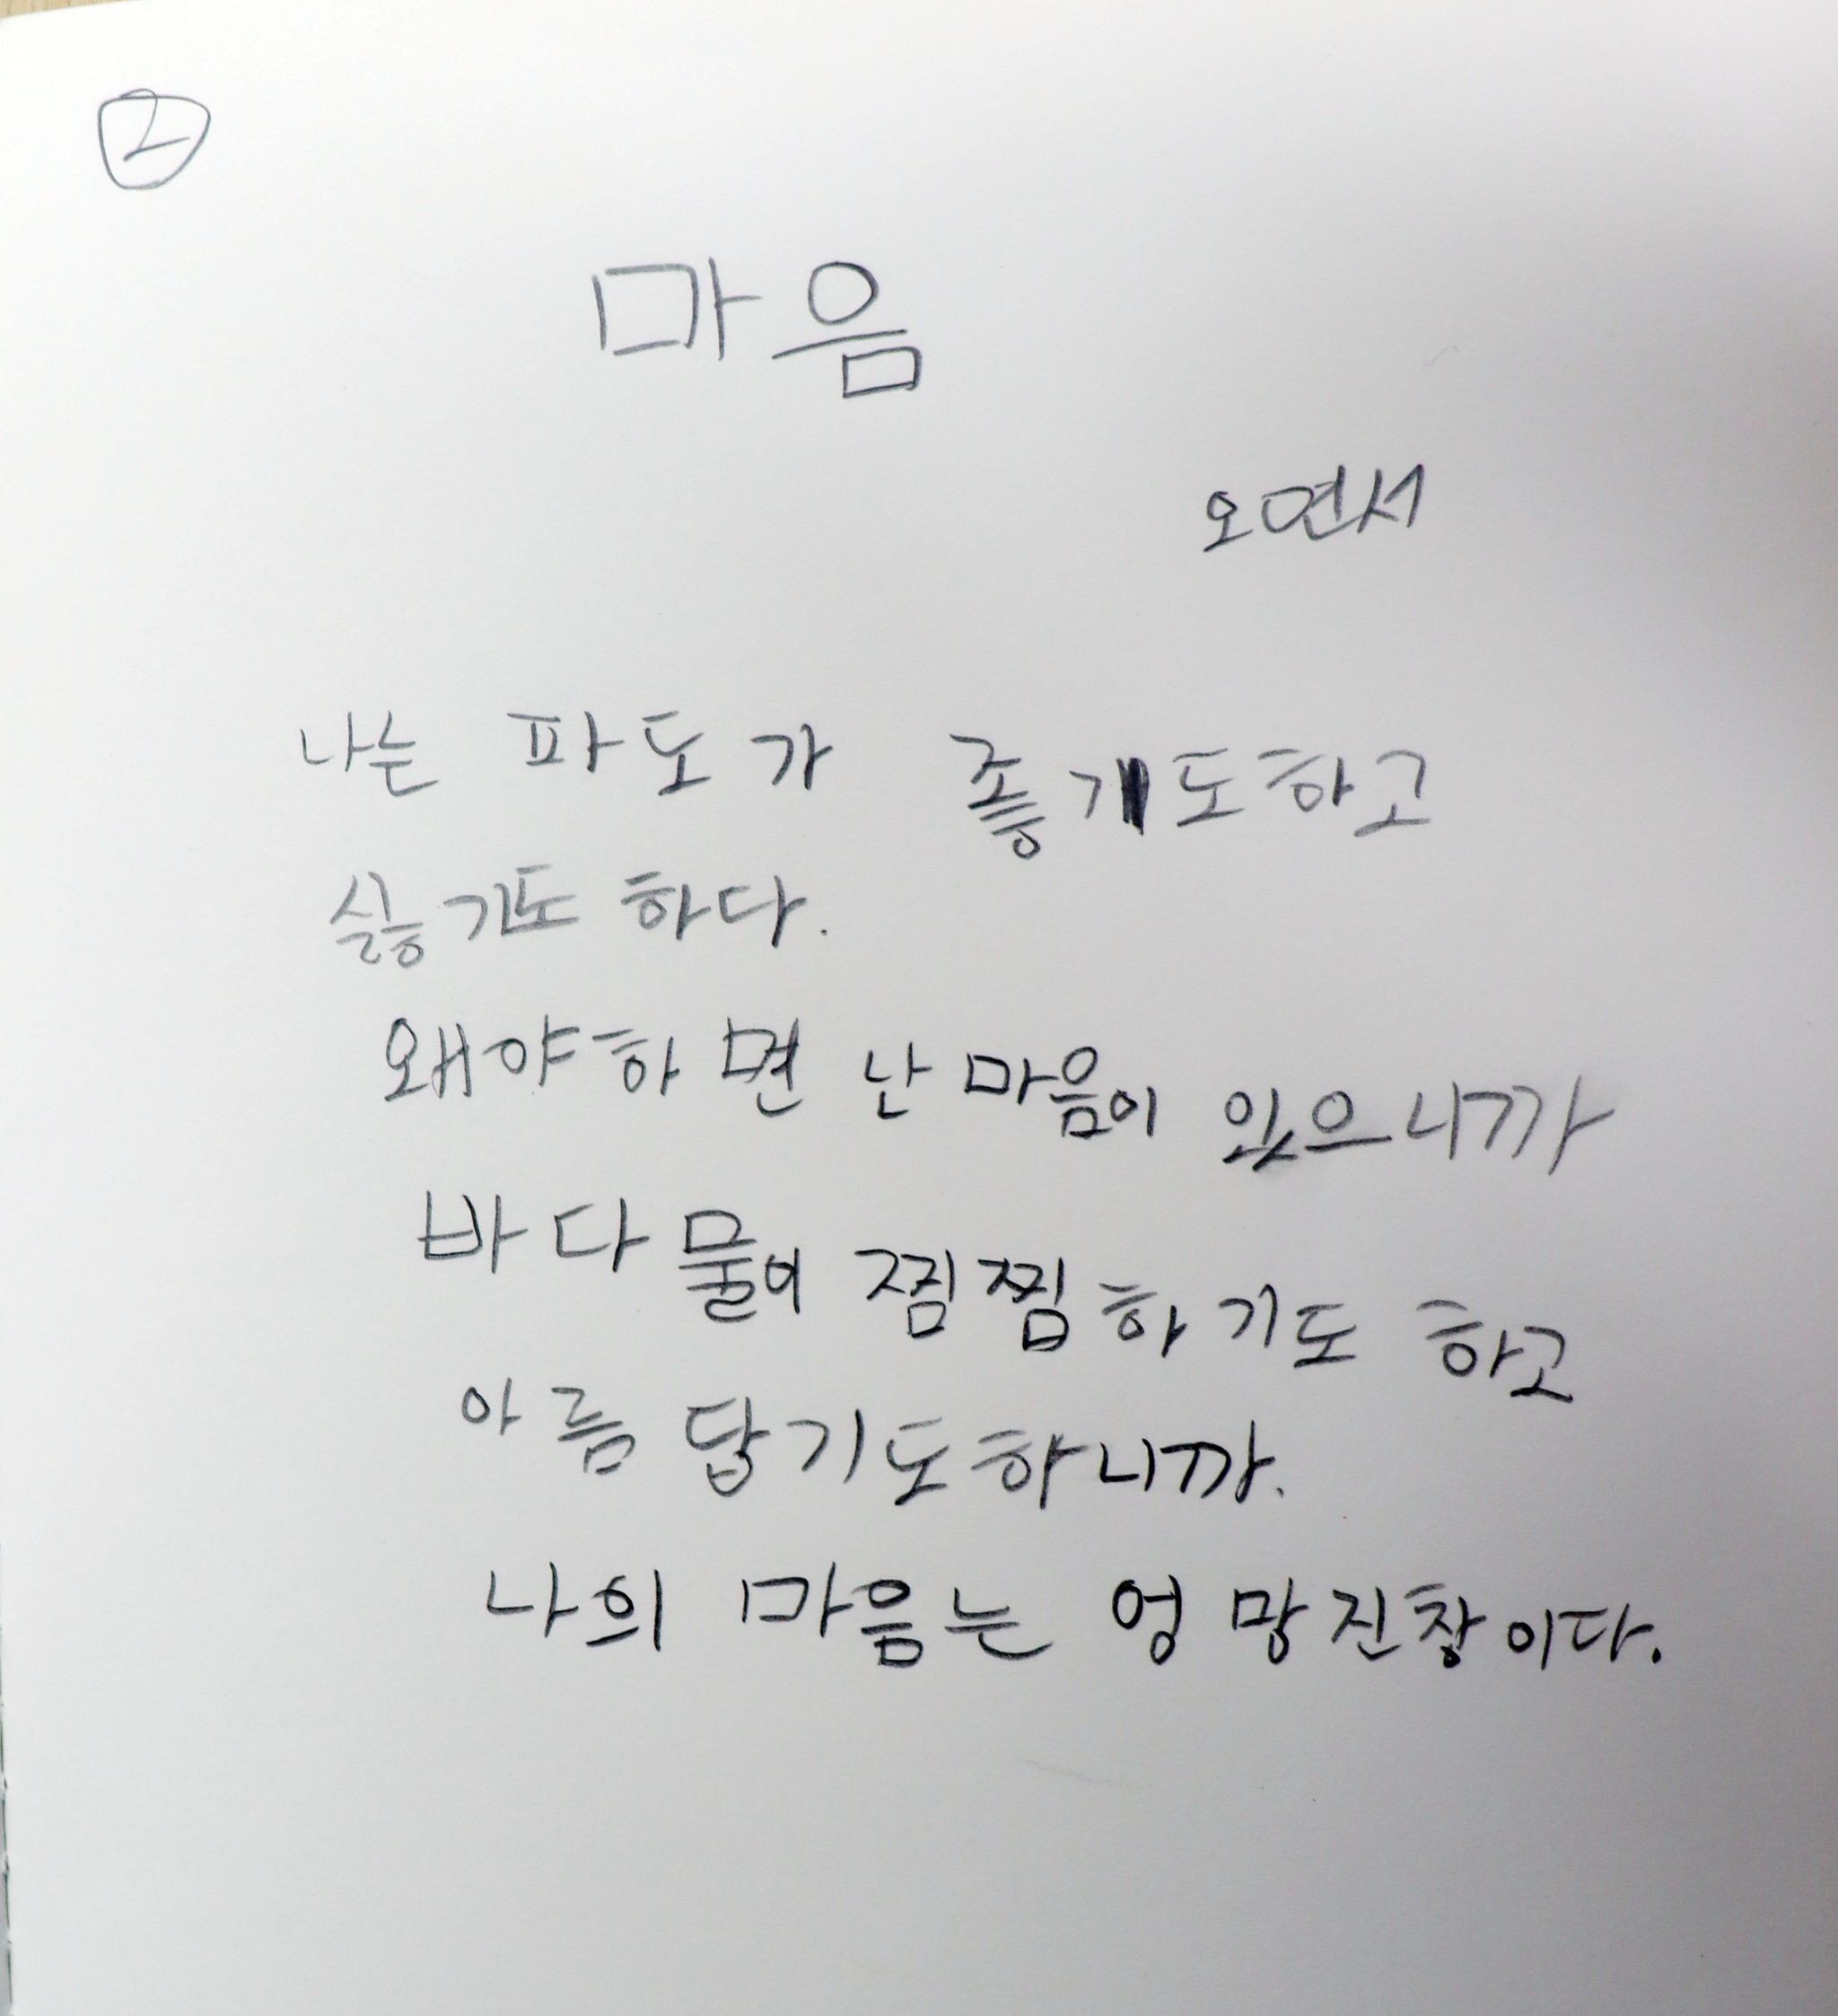 ②
마음
오연서
나는 파도가 좋기도하고
싫기도 하다.
왜야하면 난 마음이 있으니까
바다물이 찜찜하기도 하고
아름답기도하니까.
나의 마음는 엉망진창이다.